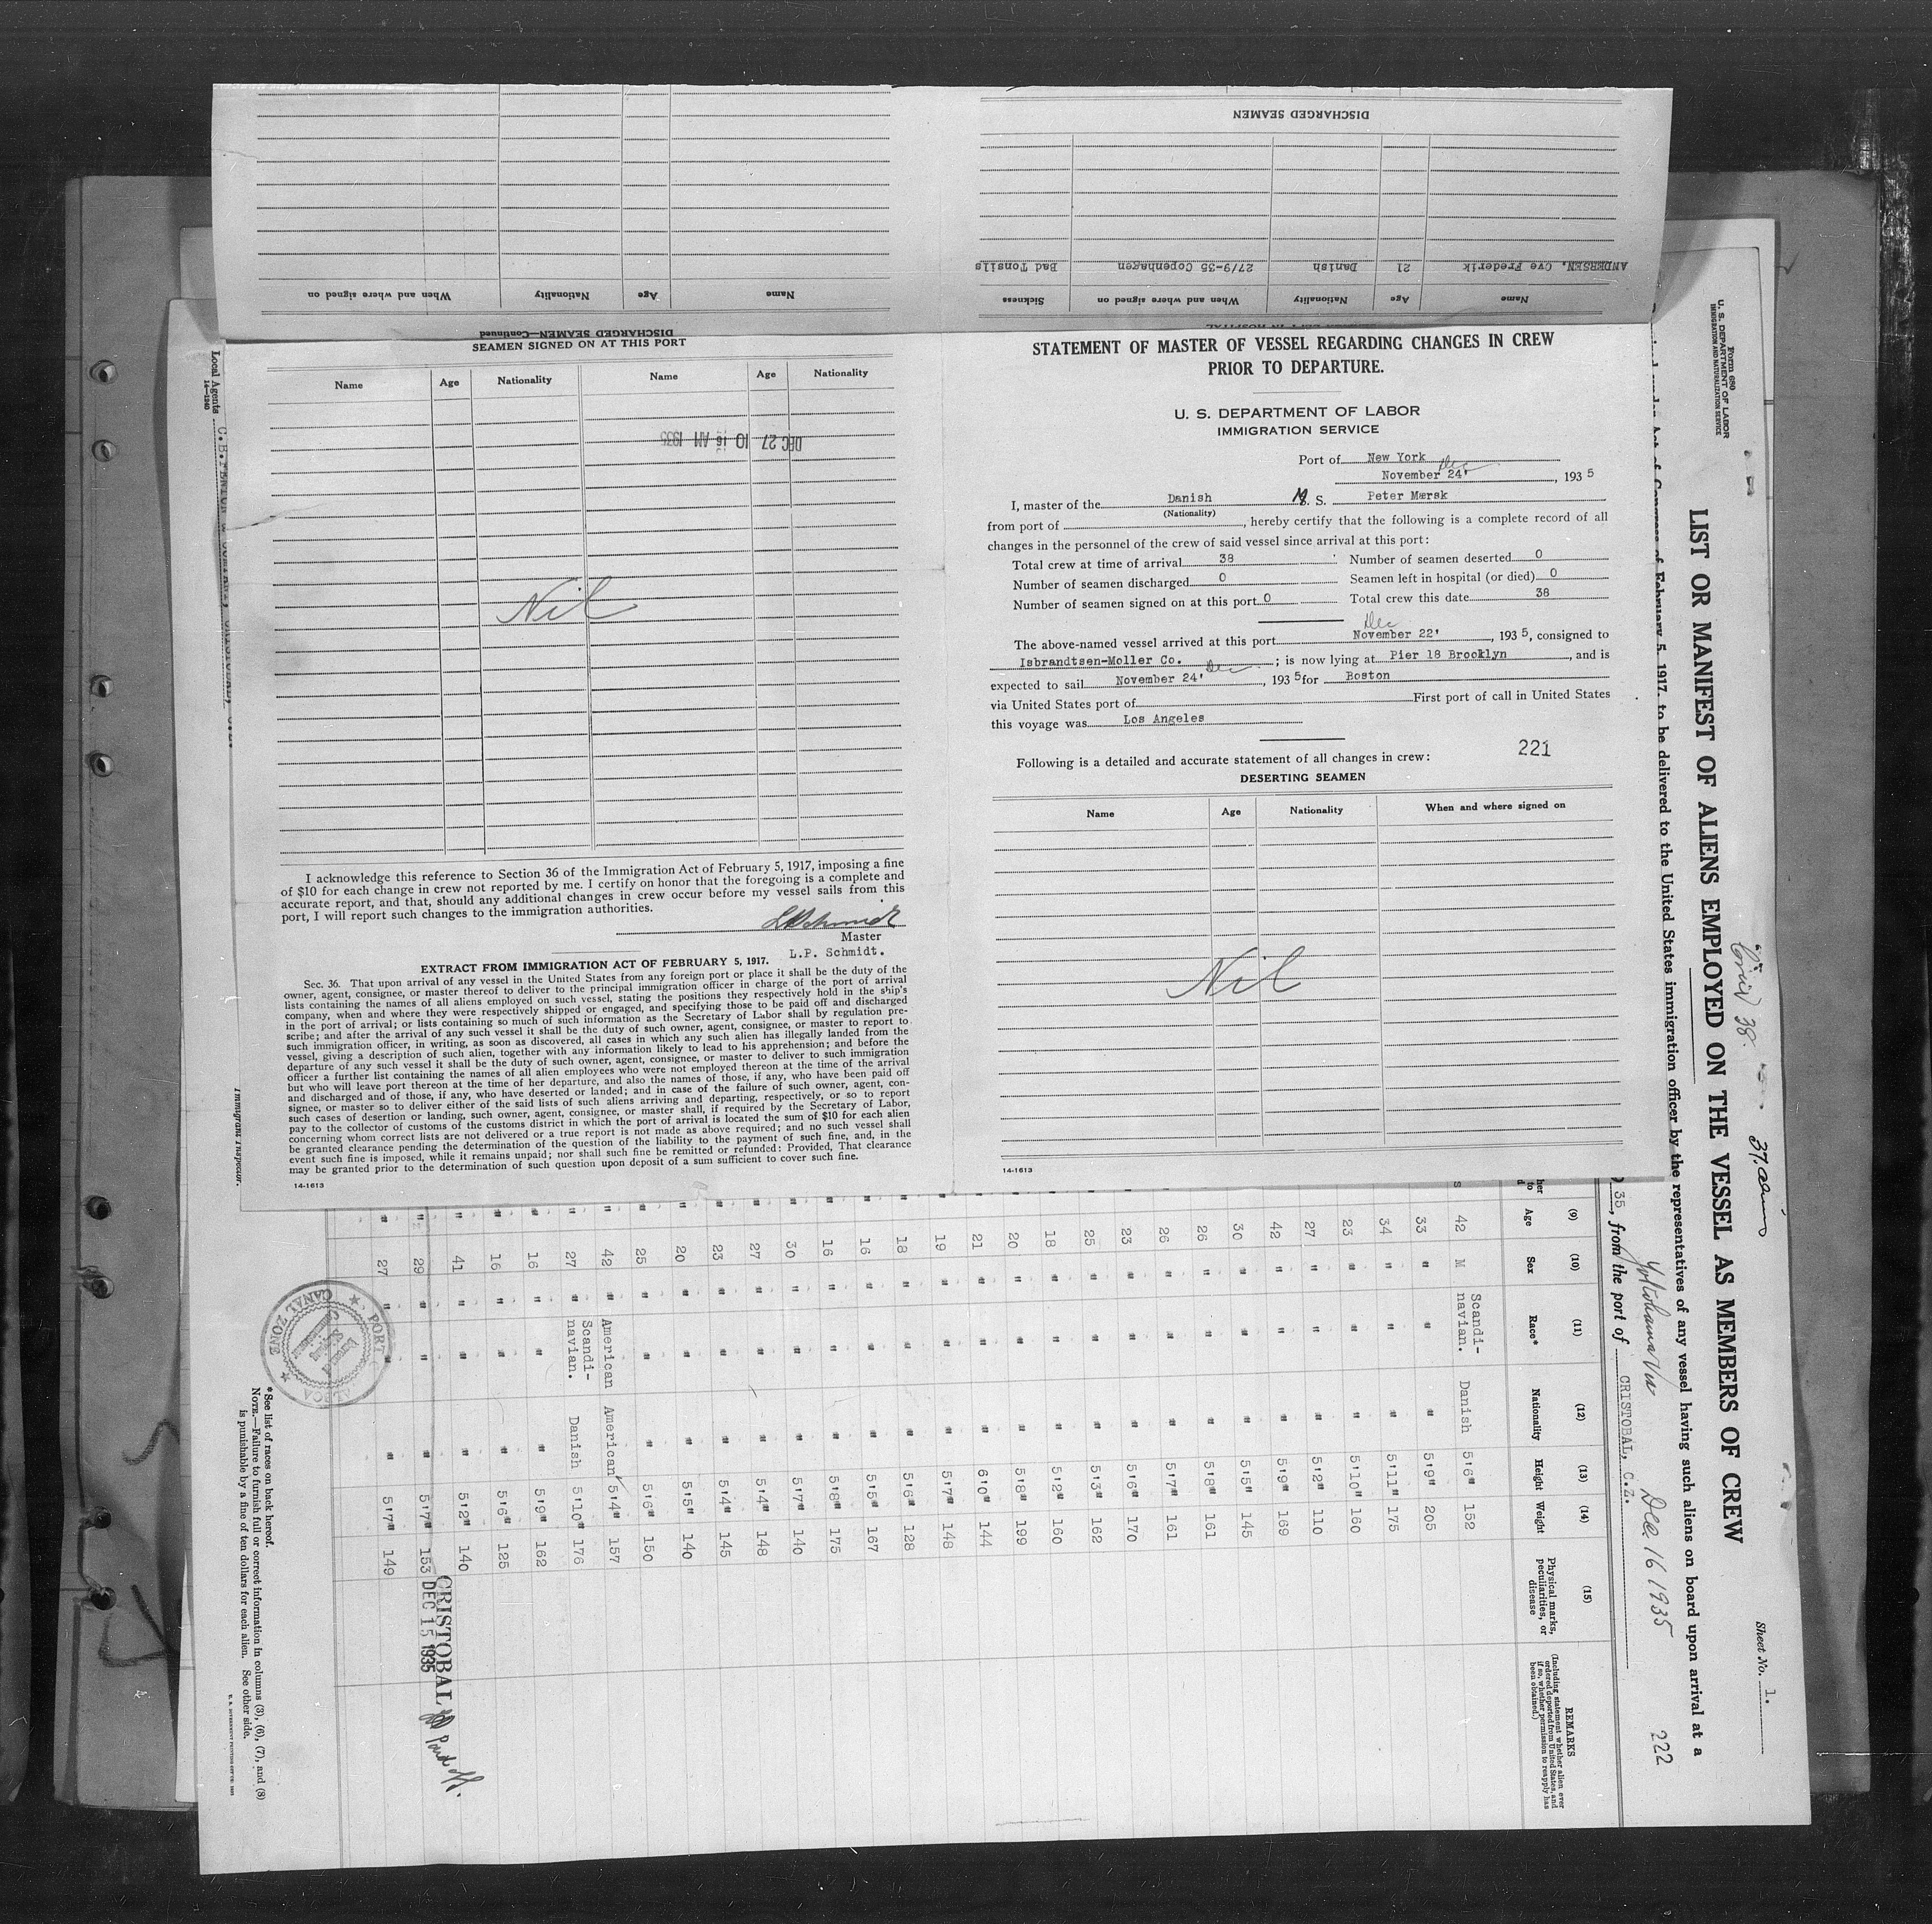 DISCHARGED SEAMEN
ANDERSEN, Ove Frederik 21 Danish 27/9-35 Copenhagen Bad Tonsils
Name Age Nationality When and where signed on Sickness
Name Age Nationality When and where signed on
DISCHARGED SEAMEN—Continued
SEAMEN SIGNED ON AT THIS PORT
Name Age Nationality Name Age Nationality
DEC 27 10 16 AM 1935
Nil
I acknowledge this reference to Section 36 of the Immigration Act of February 5, 1917, imposing a fine
of $10 for each change in crew not reported by me. I certify on honor that the foregoing is a complete and
accurate report, and that, should any additional changes in crew occur before my vessel sails from this
port, I will report such changes to the immigration authorities.
LPSchmidt
Master
L.P. Schmidt.
EXTRACT FROM IMMIGRATION ACT OF FEBRUARY 5, 1917.
Sec. 36. That upon arrival of any vessel in the United States from any foreign port or place it shall be the duty of the
owner, agent, consignee, or master thereof to deliver to the principal immigration officer in charge of the port of arrival
lists containing the names of all aliens employed on such vessel, stating the positions they respectively hold in the ship's
company, when and where they were respectively shipped or engaged, and specifying those to be paid off and discharged
in the port of arrival; or lists containing so much of such information as the Secretary of Labor shall by regulation pre-
scribe; and after the arrival of any such vessel it shall be the duty of such owner, agent, consignee, or master to report to
such immigration officer, in writing, as soon as discovered, all cases in which any such alien has illegally landed from the
vessel, giving a description of such alien, together with any information likely to lead to his apprehension; and before the
departure of any such vessel it shall be the duty of such owner, agent, consignee, or master to deliver to such immigration
officer a further list containing the names of all alien employees who were not employed thereon at the time of the arrival
but who will leave port thereon at the time of her departure, and also the names of those, if any, who have been paid off
and discharged and of those, if any, who have deserted or landed; and in case of the failure of such owner, agent, con-
signee, or master so to deliver either of the said lists of such aliens arriving and departing, respectively, or so to report
such cases of desertion or landing, such owner, agent, consignee, or master shall, if required by the Secretary of Labor,
pay to the collector of customs of the customs district in which the port of arrival is located the sum of $10 for each alien
concerning whom correct lists are not delivered or a true report is not made as above required; and no such vessel shall
be granted clearance pending the determination of the question of the liability to the payment of such fine, and, in the
event such fine is imposed, while it remains unpaid; nor shall such fine be remitted or refunded: Provided, That clearance
may be granted prior to the determination of such question upon deposit of a sum sufficient to cover such fine.
14-1613
STATEMENT OF MASTER OF VESSEL REGARDING CHANGES IN CREW
PRIOR TO DEPARTURE.
U. S. DEPARTMENT OF LABOR
IMMIGRATION SERVICE
Port of New York
Dec
November 24' , 193 5
I, master of the Danish M. S. Peter Mærsk
(Nationality)
from port of , hereby certify that the following is a complete record of all
changes in the personnel of the crew of said vessel since arrival at this port:
Total crew at time of arrival 38 Number of seamen deserted 0
Number of seamen discharged 0 Seamen left in hospital (or died) 0
Number of seamen signed on at this port 0 Total crew this date 38
Dec
The above-named vessel arrived at this port November 22' , 193 5, consigned to
Isbrandtsen-Moller Co. ; is now lying at Pier 18 Brooklyn , and is
Dec
expected to sail November 24' , 193 5 for Boston
via United States port of First port of call in United States
this voyage was Los Angeles
221
Following is a detailed and accurate statement of all changes in crew:
DESERTING SEAMEN
Name Age Nationality When and where signed on
Nil
14-1613
Form 680
U. S. DEPARTMENT OF LABOR
IMMIGRATION AND NATURALIZATION SERVICE
Sheet No. 1.
LIST OR MANIFEST OF ALIENS EMPLOYED ON THE VESSEL AS MEMBERS OF CREW
Act of Congress of February 5, 1917, to be delivered to the United States immigration officer by the representatives of any vessel having such aliens on board upon arrival at a
Yokohama Dec 16 1935 222
35, from the port of CRISTOBAL, C.Z.
(9) (10) (11) (12) (13) (14) (15)
Age Sex Race* Nationality Height Weight Physical marks, peculiarities, or disease
REMARKS
(Including statement whether alien ever ordered deported from United States, and if so, whether permission to reapply has been obtained.)
42 M Scandi-navian. Danish 5'6" 152
33 " " " 5'9" 205
34 " " " 5'11" 175
23 " " " 5'10" 160
27 " " " 5'2" 110
42 " " " 5'9" 169
30 " " " 5'5" 145
26 " " " 5'8" 161
26 " " " 5'7" 161
23 " " " 5'6" 170
25 " " " 5'3" 162
18 " " " 5'2" 160
20 " " " 5'8" 199
21 " " " 6'0" 144
19 " " " 5'7" 148
18 " " " 5'6" 128
16 " " " 5'5" 167
16 " " " 5'8" 175
30 " " " 5'7" 140
27 " " " 5'4" 148
23 " " " 5'4" 145
20 " " " 5'5" 140
25 " " " 5'6" 150
42 " American American 5'4" 157
27 " Scandi-navian. Danish 5'10" 176
16 " " " 5'9" 162
16 " " " 5'6" 125
41 " " " 5'2" 140
29 " " " 5'7" 153
27 " " " 5'7" 149
CRISTOBAL
DEC 15 1935
Paid off.
PORT
CANAL ZONE
Local Agents C.B.FENTON & COMPANY, CRISTOBAL, C.Z.
14-1240
Immigrant Inspector.
*See list of races on back hereof.
NOTE.—Failure to furnish full or correct information in columns (3), (6), (7), and (8)
is punishable by a fine of ten dollars for each alien. See other side.